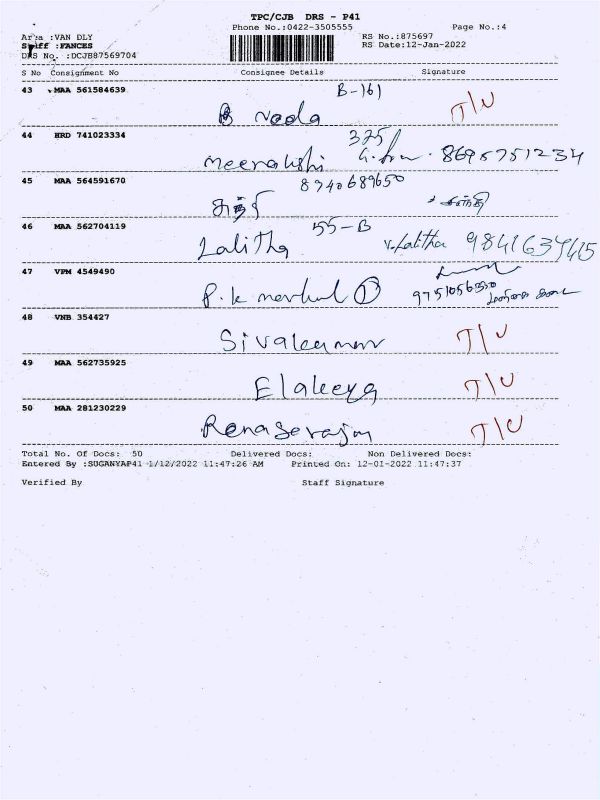 TPC/CJB DRS - P41
Phone No.:0422-3505555 Page No.:4
Area :VAN DLY RS No.:875697
Staff :FANCES RS Date:12-Jan-2022
DRS No. :DCJB87569704
S No Consignment No Consignee Details Signature
43 MAA 561584639 B-161
B Veda T/U
44 HRD 741023334 325/
Meenakshi 8695751234
45 MAA 564591670 8940689650
46 MAA 562704119 55-B
Lalitha V. Lalitha 9841639415
47 VPM 4549490
P.K 9751056350
48 VNB 354427
Sivakumar T/U
49 MAA 562735925
T/U
50 MAA 281230229
T/U
Total No. Of Docs: 50 Delivered Docs: Non Delivered Docs:
Entered By :SUGANYAP41 1/12/2022 11:47:26 AM Printed On: 12-01-2022 11:47:37
Verified By Staff Signature